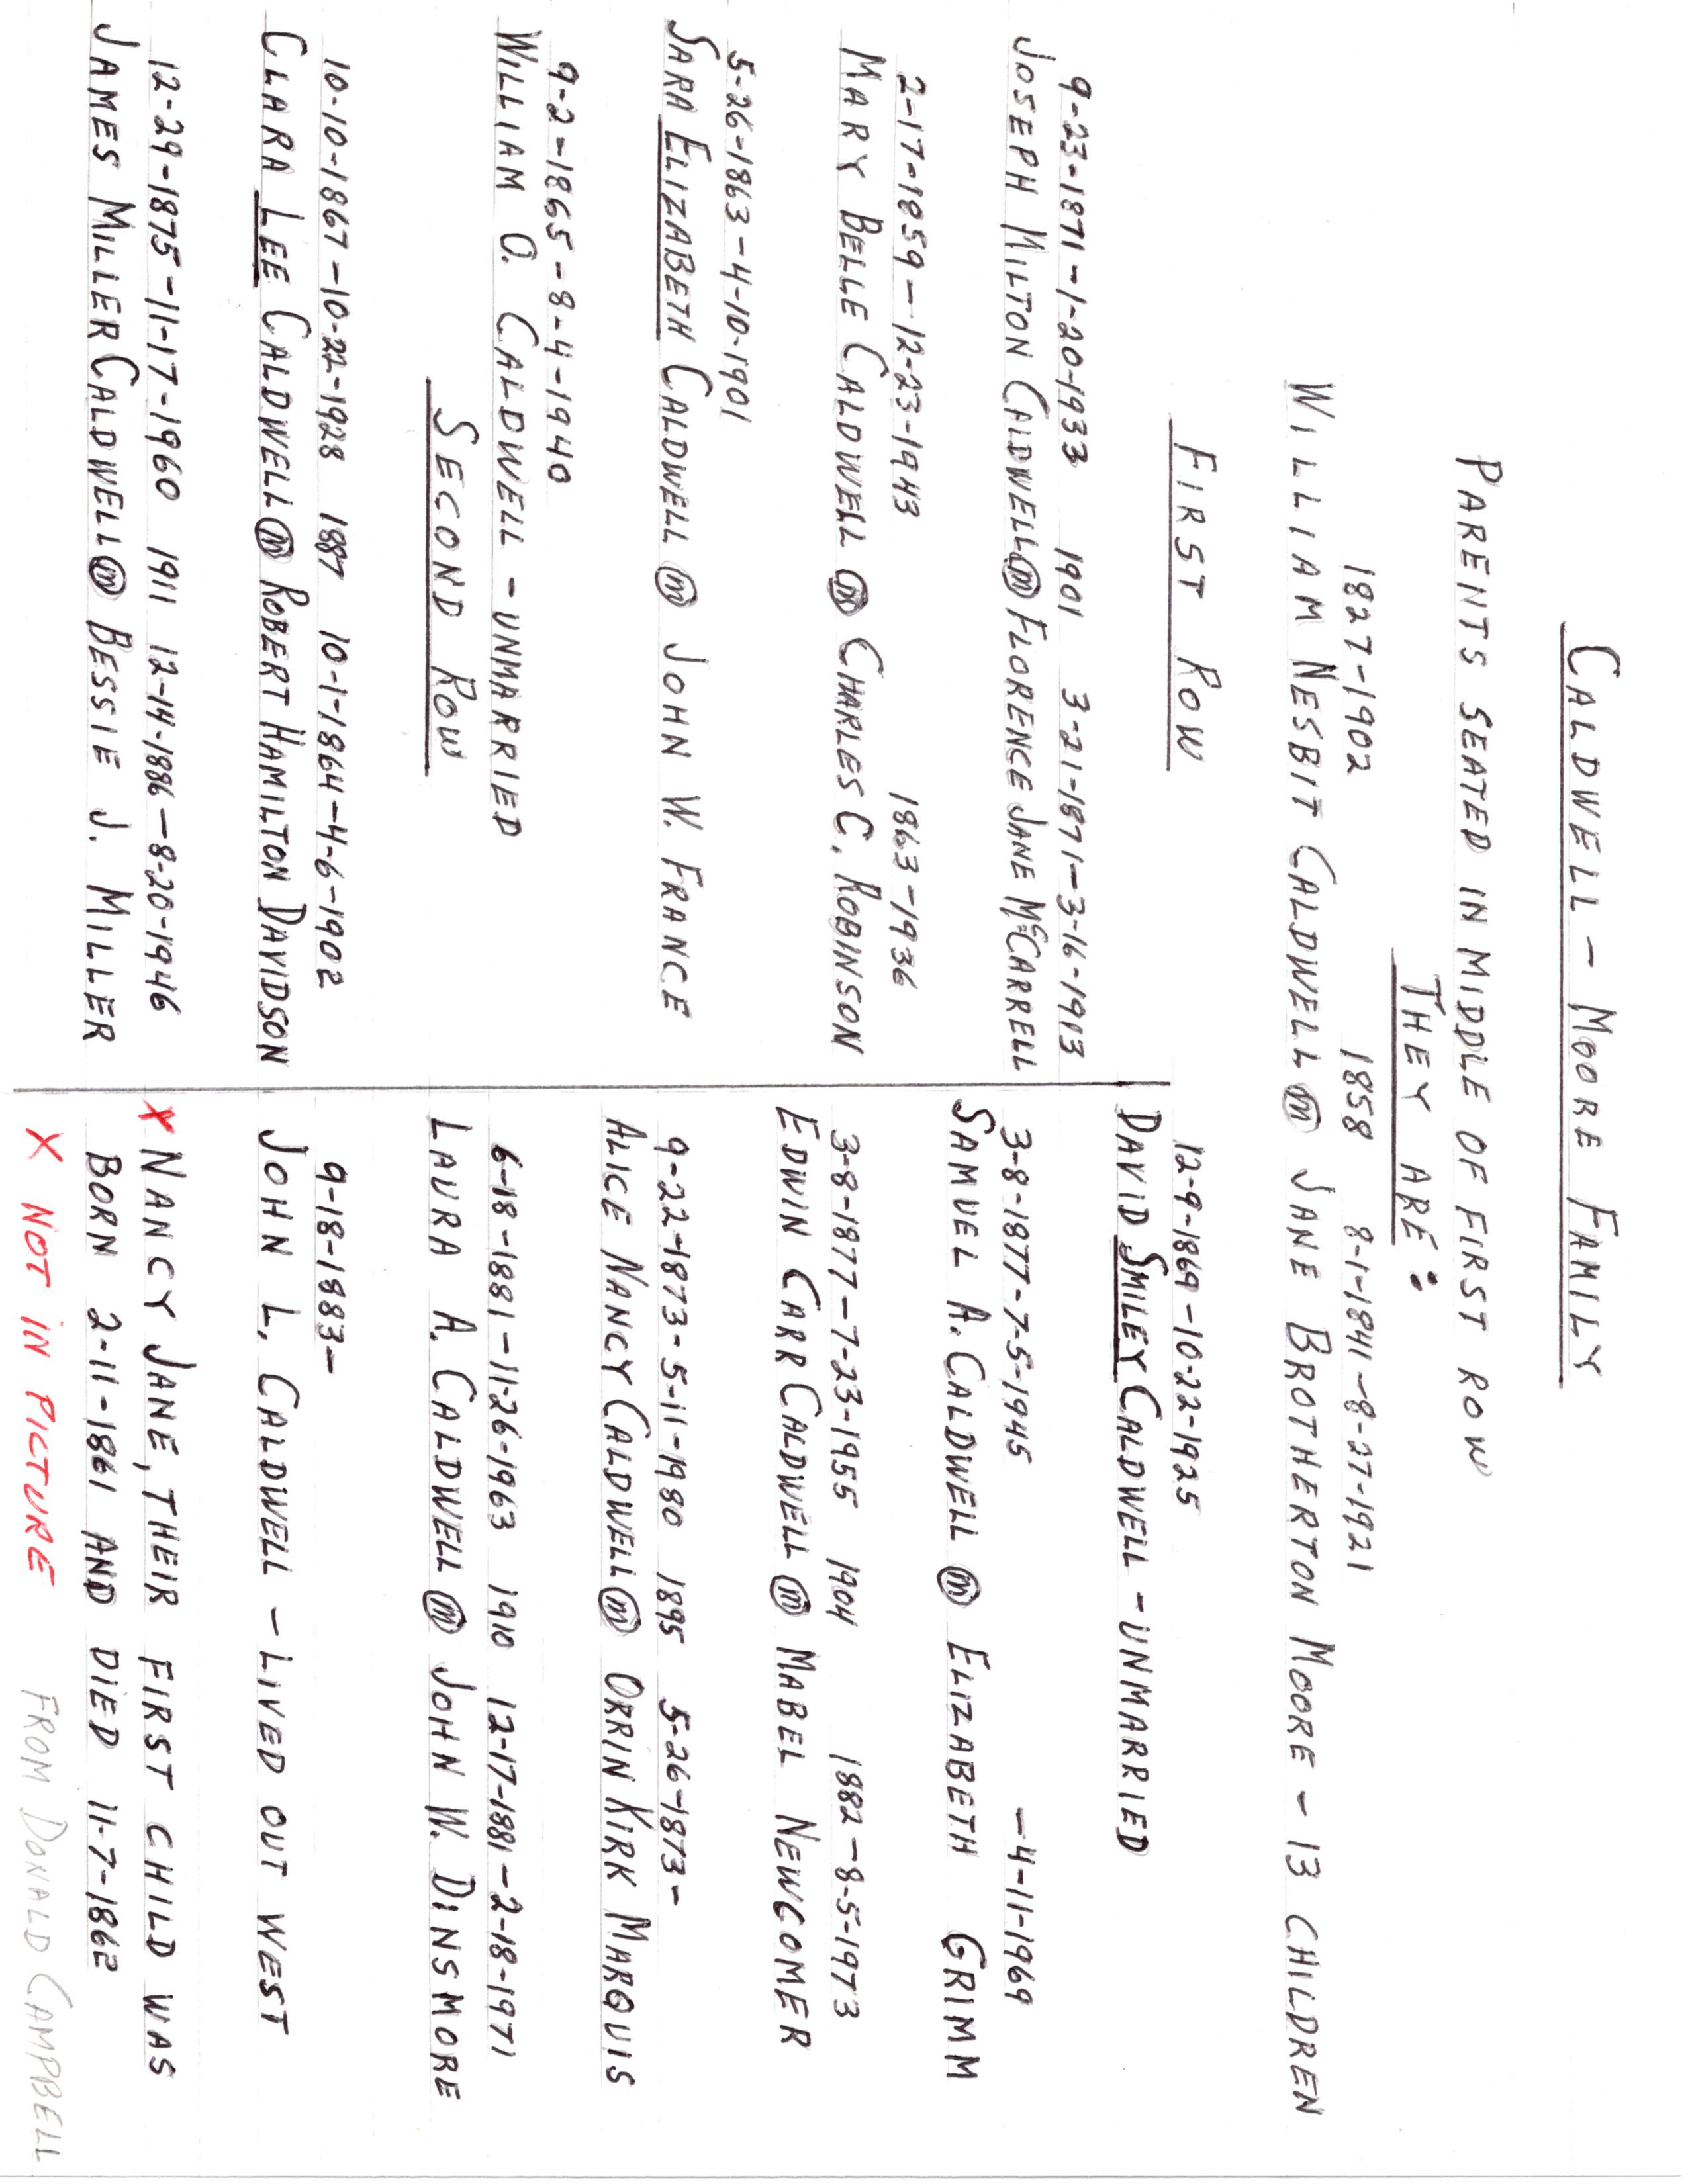 CALDWELL – MOORE FAMILY
PARENTS SEATED IN MIDDLE OF FIRST ROW
THEY ARE:
1827-1902 1858 8-1-1841-8-27-1921
WILLIAM NESBIT CALDWELL (m) JANE BROTHERTON MOORE - 13 CHILDREN
FIRST ROW
9-23-1871-1-20-1933 1901 3-21-1871-3-16-1913
JOSEPH MILTON CALDWELL (m) FLORENCE JANE McCARRELL
2-17-1859-12-23-1943 1863-1936
MARY BELLE CALDWELL (m) CHARLES C. ROBINSON
5-26-1863-4-10-1901
SARA ELIZABETH CALDWELL (m) JOHN W. FRANCE
9-2-1865-8-4-1940
WILLIAM O. CALDWELL - UNMARRIED
SECOND ROW
10-10-1867-10-22-1928 1887 10-1-1864-4-6-1902
CLARA LEE CALDWELL (m) ROBERT HAMILTON DAVIDSON
12-29-1875-11-17-1960 1911 12-14-1886-8-20-1946
JAMES MILLER CALDWELL (m) BESSIE J. MILLER
12-9-1869-10-22-1925
DAVID SMILEY CALDWELL - UNMARRIED
3-8-1877-7-5-1945 -4-11-1969
SAMUEL A. CALDWELL (m) ELIZABETH GRIMM
3-8-1877-7-23-1955 1904 1882-8-5-1973
EDWIN CARR CALDWELL (m) MABEL NEWCOMER
9-22-1873-5-11-1980 1895 5-26-1873-
ALICE NANCY CALDWELL (m) ORRIN KIRK MARQUIS
6-18-1881-11-26-1963 1910 12-17-1881-2-18-1971
LAURA A. CALDWELL (m) JOHN W. DINSMORE
9-18-1883-
JOHN L. CALDWELL - LIVED OUT WEST
X NANCY JANE, THEIR FIRST CHILD WAS
BORN 2-11-1861 AND DIED 11-7-1862
X NOT IN PICTURE FROM DONALD CAMPBELL